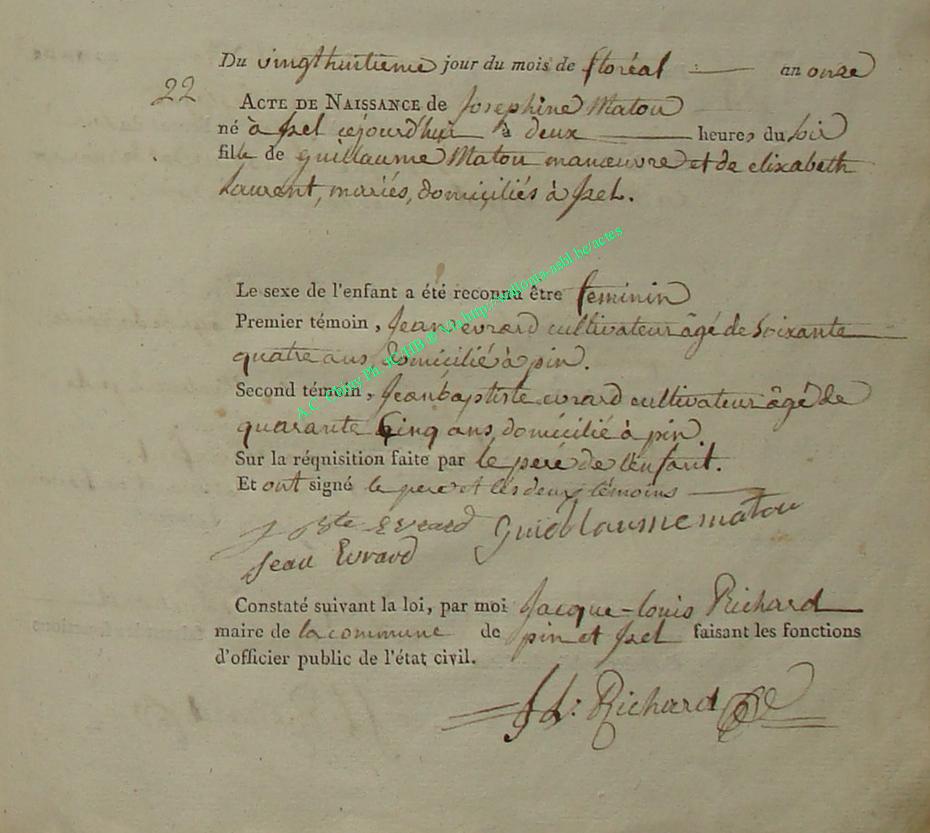 Du vingthuitième jour du mois de floréal an onze
22
ACTE DE NAISSANCE de Josephine Matou
né à Izel cejourd'hui à deux heures du soir
fille de guillaume Matou manœuvre et de elixabeth
Laurent, mariés, domiciliés à Izel.
Le sexe de l'enfant a été reconnu être feminin
Premier témoin, Jean evrard cultivateur âgé de soixante
quatre ans, domicilié à pin.
Second témoin, Jean baptiste evrard cultivateur âgé de
quarante Cinq ans, domicilié à pin.
Sur la réquisition faite par le pere de l'enfant.
Et ont signé le pere et les deux témoins
J Bte Evrard Guillaume matou
Jean Evrard
Constaté suivant la loi, par moi Jacque-louis Richard
maire de la commune de pin et Izel faisant les fonctions
d'officier public de l'état civil.
J L: Richard
http://wallonia-asbl.be/actes